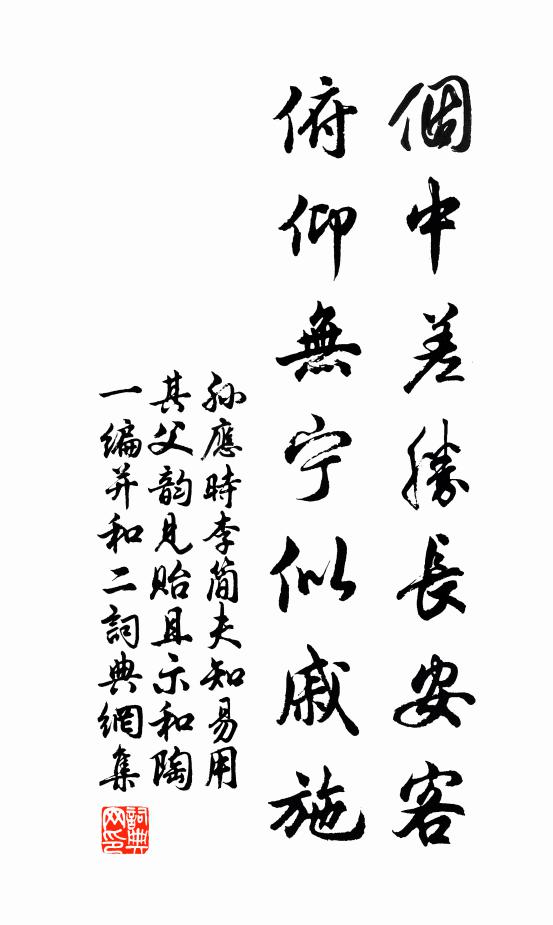 個中差勝長安客
俯仰無宁似戚施
孙應時李简夫知易用
其父韵見贻且示和陶
一编并和二詞典網集
詞典网印